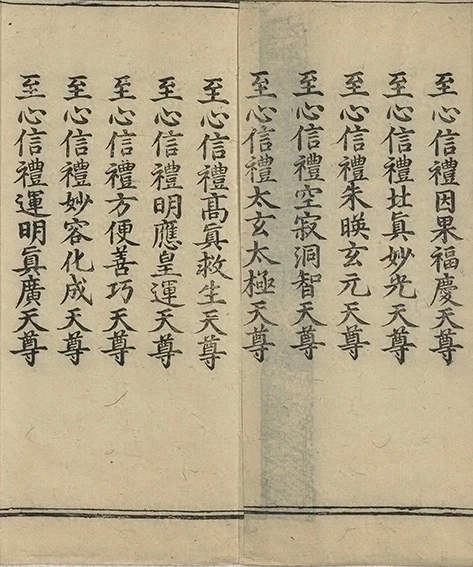 至心信禮因果福慶天尊
至心信禮壯真妙光天尊
至心信禮朱暎玄元天尊
至心信禮空寂洞智天尊
至心信禮太玄太極天尊
至心信禮高真救生天尊
至心信禮明應皇運天尊
至心信禮方便善巧天尊
至心信禮妙容化成天尊
至心信禮運明真廣天尊